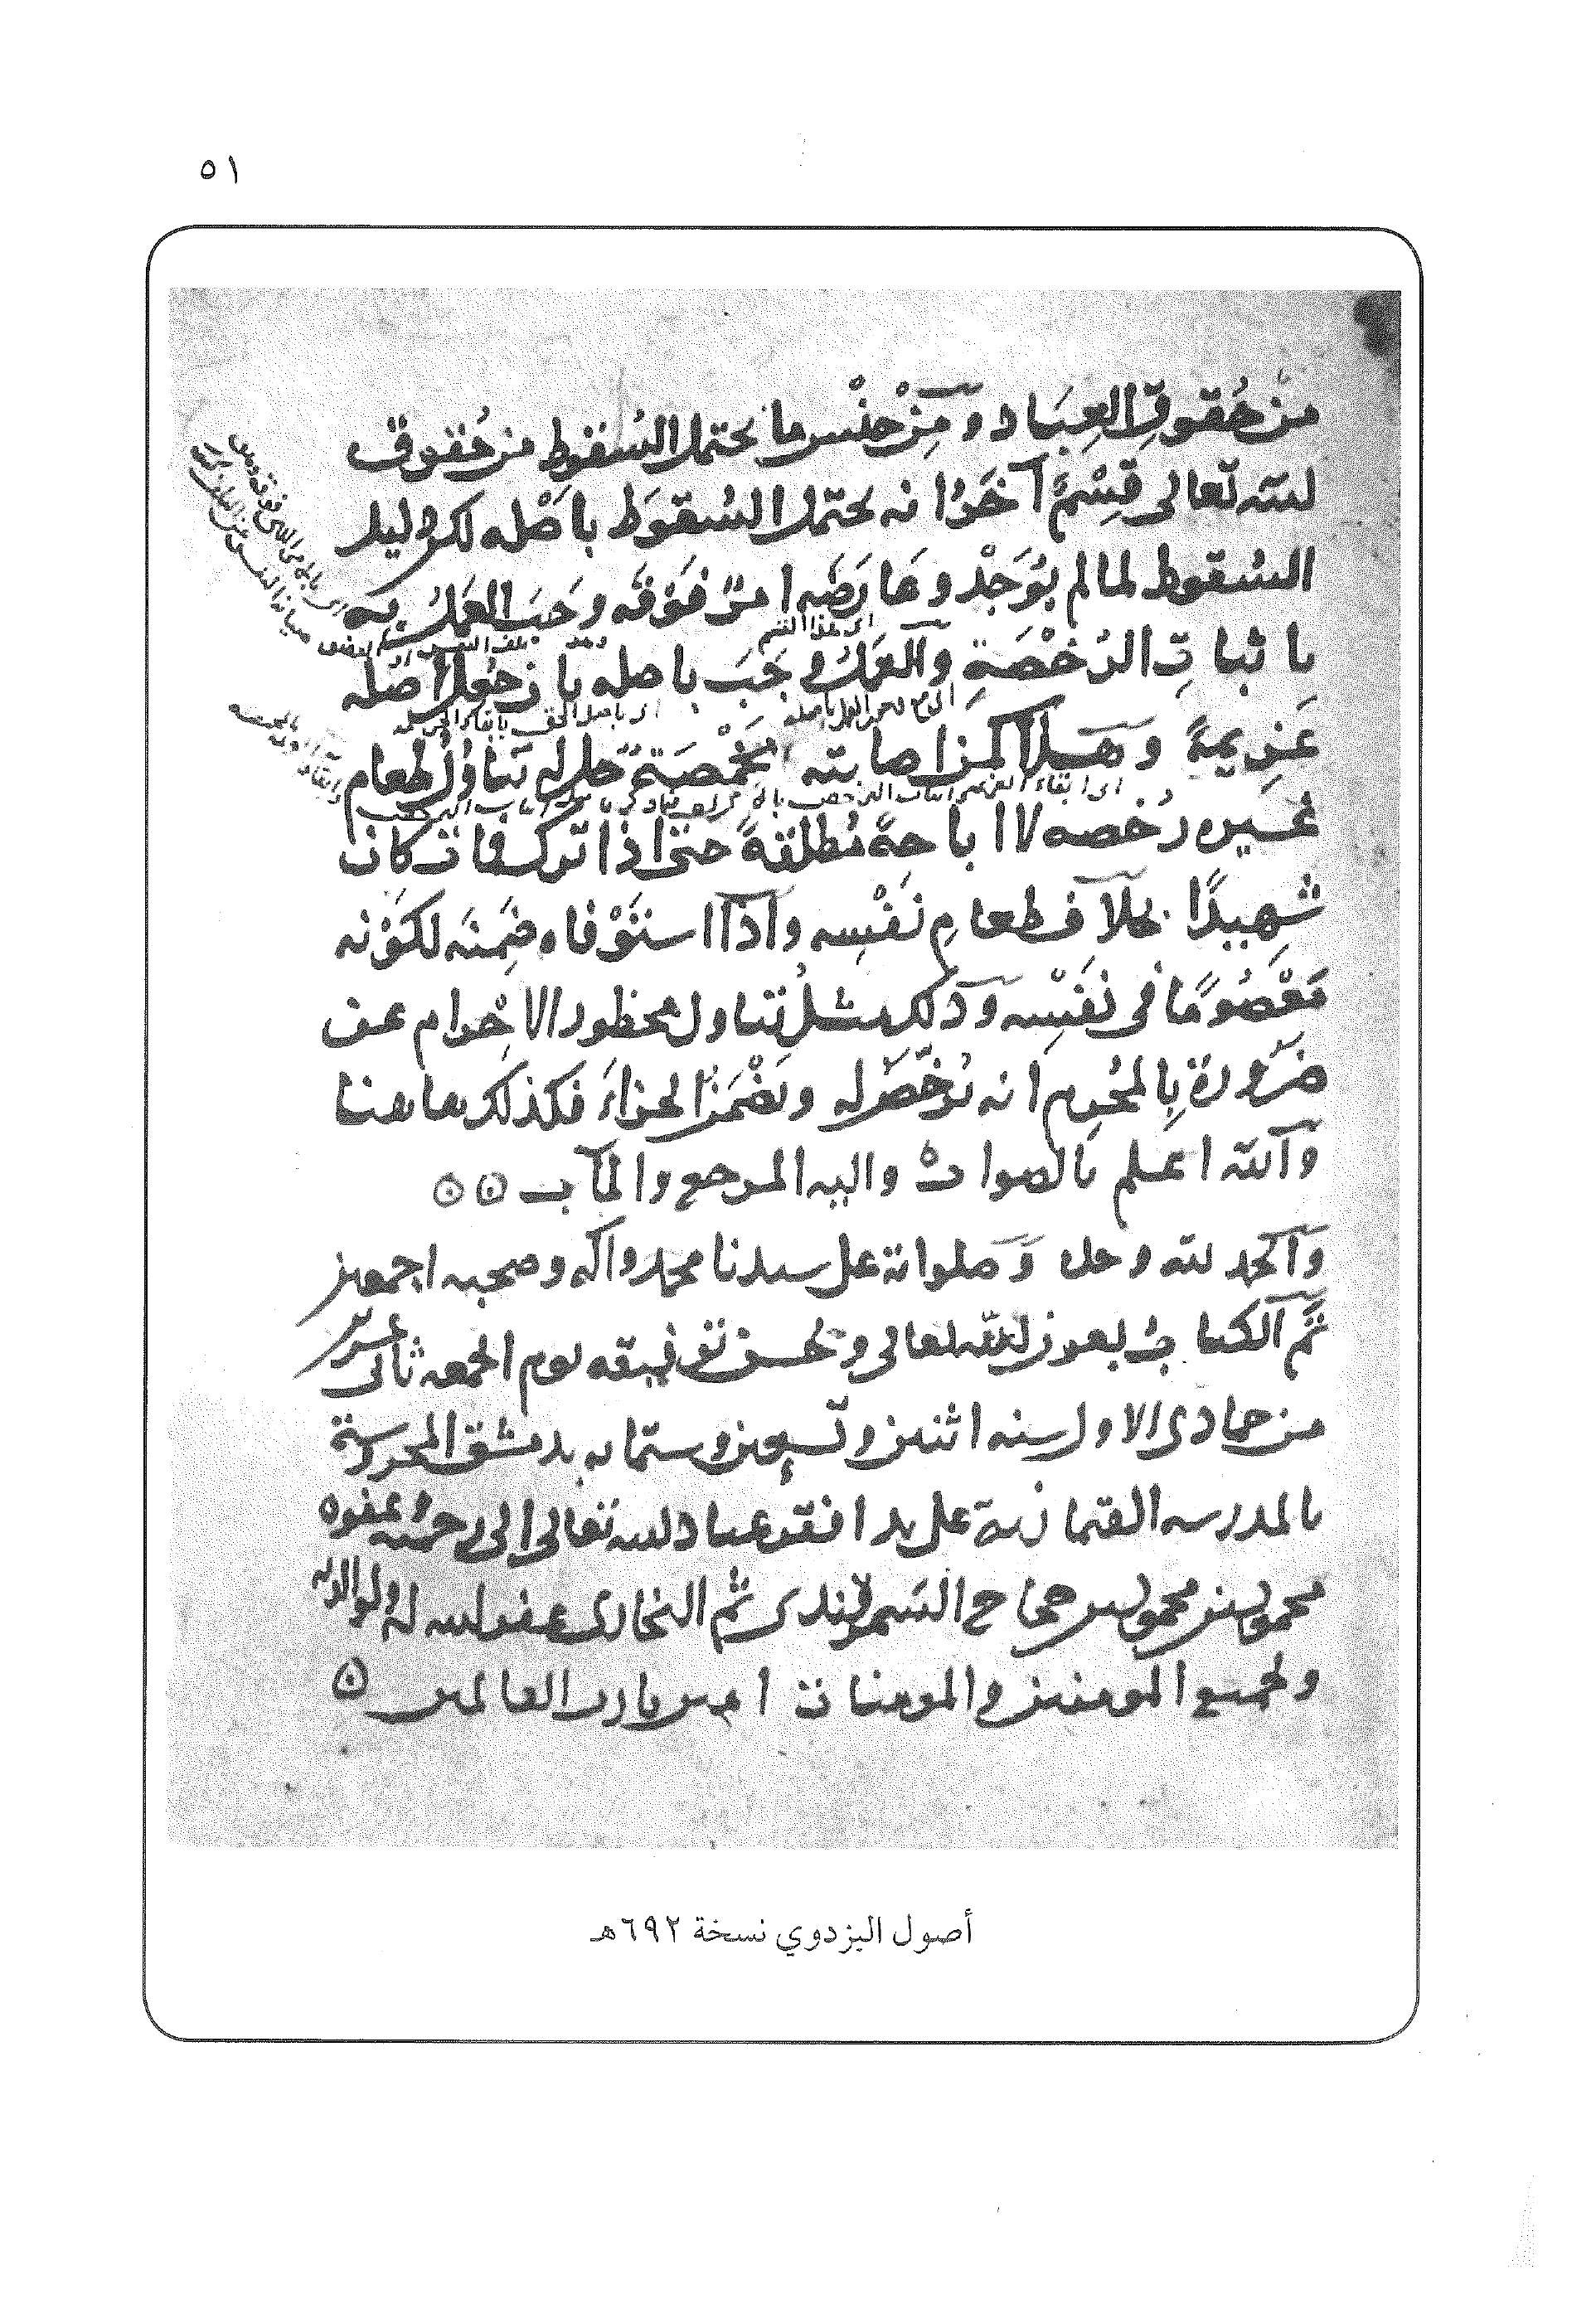 ٥١
من حُقوقِ العِبَاد ومِنْ جنْس ما يحتمل السُقوط من حُقوق
الله تعالى قِسْمٌ آخَرُ انه يحتمل السُقوطَ باَصْله لكن دليل
السُقوط لما لم يُوجَدْ وعَارَضَه امرٌ فَوْقَه وجَبَ العَمَلُ به
باثباتِ الرُخْصَةِ والعَمَلُ وجَبَ باصله بان جُعل اَصْله
عَزيمةً وهذا كمن اصابته مَخْمَصَة حل له تناوُلُ طعام
غيره رُخصه لا اباحةً مُطلقةً حتى اذا ترك فمات كان
شهِيدًا بخلاف طعامِ نَفْسِه واذا استَوْفاه ضَمِنَه لكَوْنه
مَعْصُومًا في نَفْسِه وذلك مثل تناول محظور الاِحْرام عن
ضَرُورة بِالمُحْرِم انه يُرخّصُ له ويَضْمَنُ الجزاءَ فكذلك هاهنا
والله اعلم بالصواب واليه المرجع والمآب
والحمد لله وحده وصلواته على سيدنا محمد وآله وصحبه اجمعين
تَمَّ الكتابُ بعون الله تعالى وحسن توفيقه يوم الجمعه ثاني عشر
من جمادى الاول سنه اثنين وتسعين وستمايه بدمشق المحروسة
بالمدرسه القيمازية على يد افقر عباد الله تعالى الى رحمته وعفوه
محمود بن محمود بن حجاج السَمرقندي ثُم البخاري غفر الله له ولوالديه
ولجميع المومنين والمومنات امين يا رب العالمين
أصول البزدوي نسخة ٦٩٢هـ